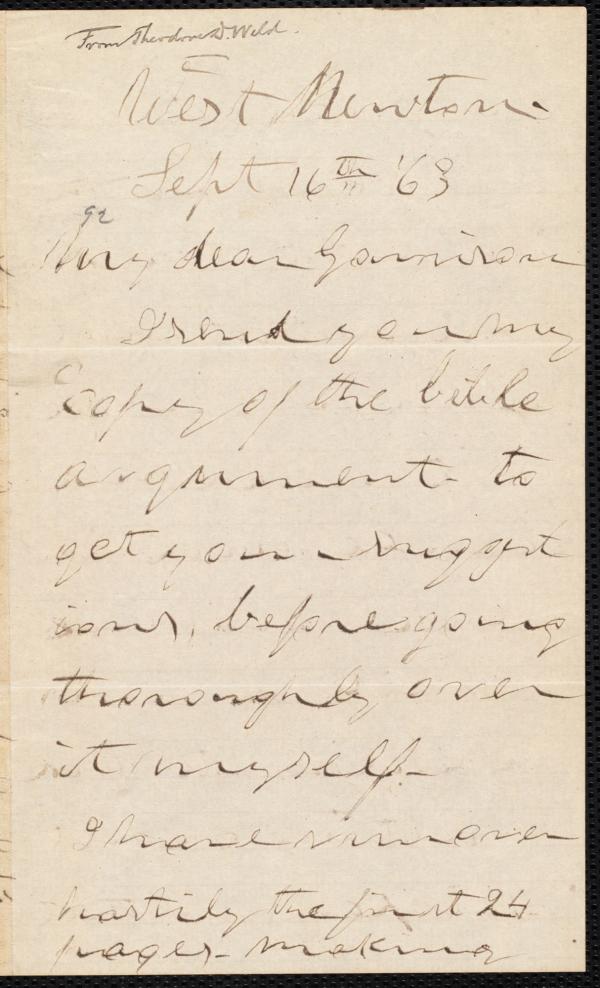 From Theodore D. Weld.
West Newton.
Sept 16th '63
92
My dear Garrison
I send you my
copy of the bible
argument - to
get your suggest
ions, before going
thoroughly over
it myself -
I have run over
hastily the first 24
pages - making